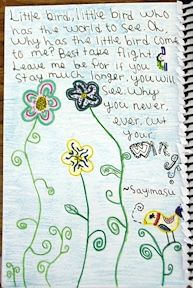 Little bird, little bird who
has the world to see. Oh,
Why has the little bird come
to me? Best take flight.
Leave me be for if you
Stay much longer, you will
see. Why
you never,
ever, cut
your
~Sayimasu